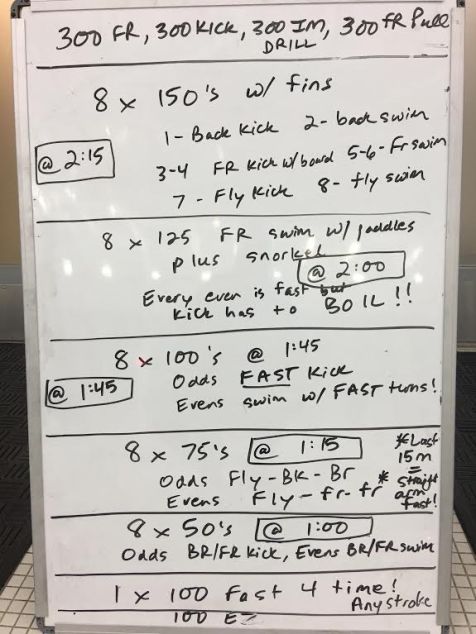 300 FR, 300 KICK, 300 IM, 300 FR Pull
DRILL
8 x 150's w/ fins
1- Back Kick 2- back swim
@ 2:15
3-4 FR Kick w/ board 5-6- Fr swim
7- Fly Kick 8- fly swim
8 x 125 FR swim w/ paddles
plus snorkel
@ 2:00
Every even is fast but
Kick has to BOIL!!
8 x 100's @ 1:45
@ 1:45
Odds FAST Kick
Evens swim w/ FAST turns!
8 x 75's @ 1:15
* Last
15m
=
Straight
arm
fast!
Odds Fly-BK-Br *
Evens Fly-fr-fr
8 x 50's @ 1:00
Odds BR/FR Kick, Evens BR/FR swim
1 x 100 Fast 4 time!
Any stroke
100 EZ